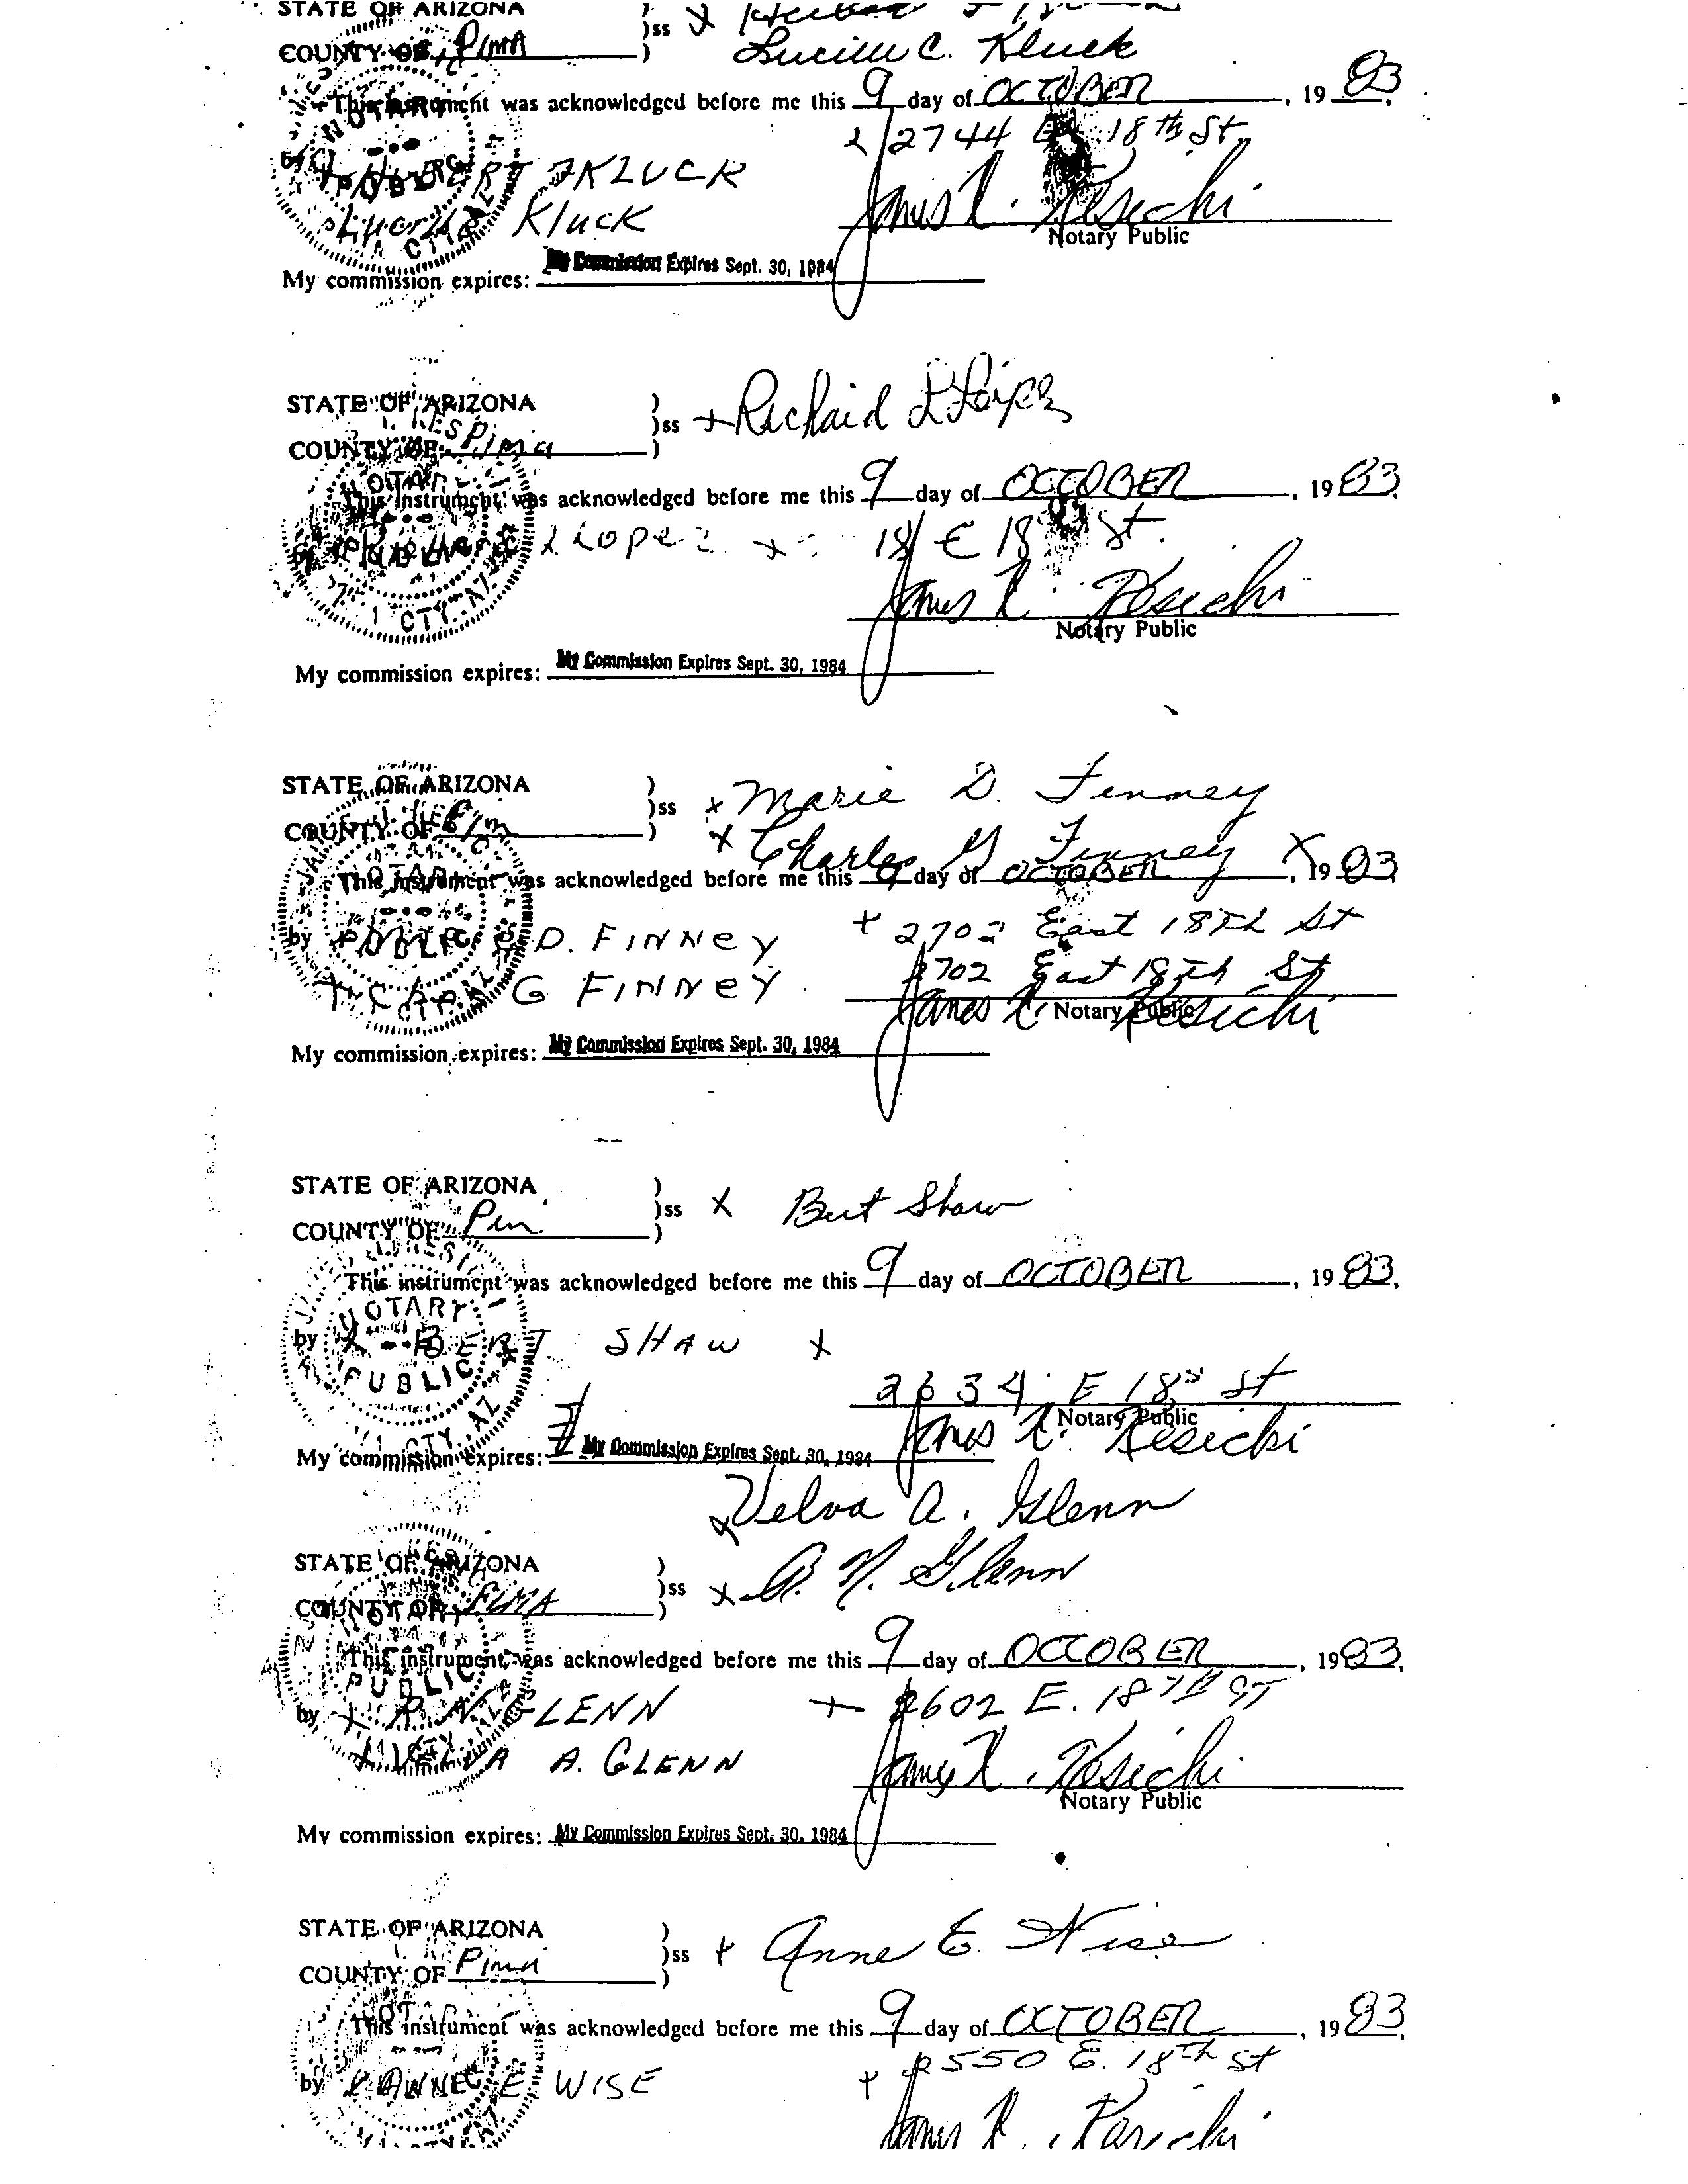 STATE OF ARIZONA )
)ss X
COUNTY OF PIMA ) Lucille C. Kluck
This instrument was acknowledged before me this 9 day of OCTOBER, 1983.
2744 E 18th St
KLUCK
Lucille Kluck
Notary Public
My commission expires: My Commission Expires Sept. 30, 1984
STATE OF ARIZONA )
)ss + Richard L Lopez
COUNTY OF Pima )
This instrument was acknowledged before me this 9 day of OCTOBER, 1983.
by L Lopez x E 18 St.
James R. Kesicki
Notary Public
My commission expires: My Commission Expires Sept. 30, 1984
STATE OF ARIZONA )
)ss x Marie D. Finney
COUNTY OF Pim ) x Charles G Finney X
This instrument was acknowledged before me this 9 day of OCTOBER, 1983
by D. FINNEY + 2702 East 18th St
G FINNEY 2702 East 18th St
James R. Kesicki
Notary Public
My commission expires: My Commission Expires Sept. 30, 1984
STATE OF ARIZONA )
)ss X Bert Shaw
COUNTY OF Pim )
This instrument was acknowledged before me this 9 day of OCTOBER, 1983.
NOTARY
by X BERT SHAW X
PUBLIC
2634 E 18 St
Notary Public
James R. Kesicki
My commission expires: My Commission Expires Sept. 30, 1984
x Velva A. Glenn
STATE OF ARIZONA )
)ss x R. N. Glenn
COUNTY OF PIMA )
This instrument was acknowledged before me this 9 day of OCTOBER, 1983.
PUBLIC
by X R. N. GLENN + 2602 E. 18TH ST
X VELVA A. GLENN
James R. Kesicki
Notary Public
My commission expires: My Commission Expires Sept. 30, 1984
STATE OF ARIZONA )
)ss + Anne E. Wise
COUNTY OF Pima )
This instrument was acknowledged before me this 9 day of OCTOBER, 1983.
+ 2550 E. 18th St
by X ANNE E WISE
James R. Kesicki